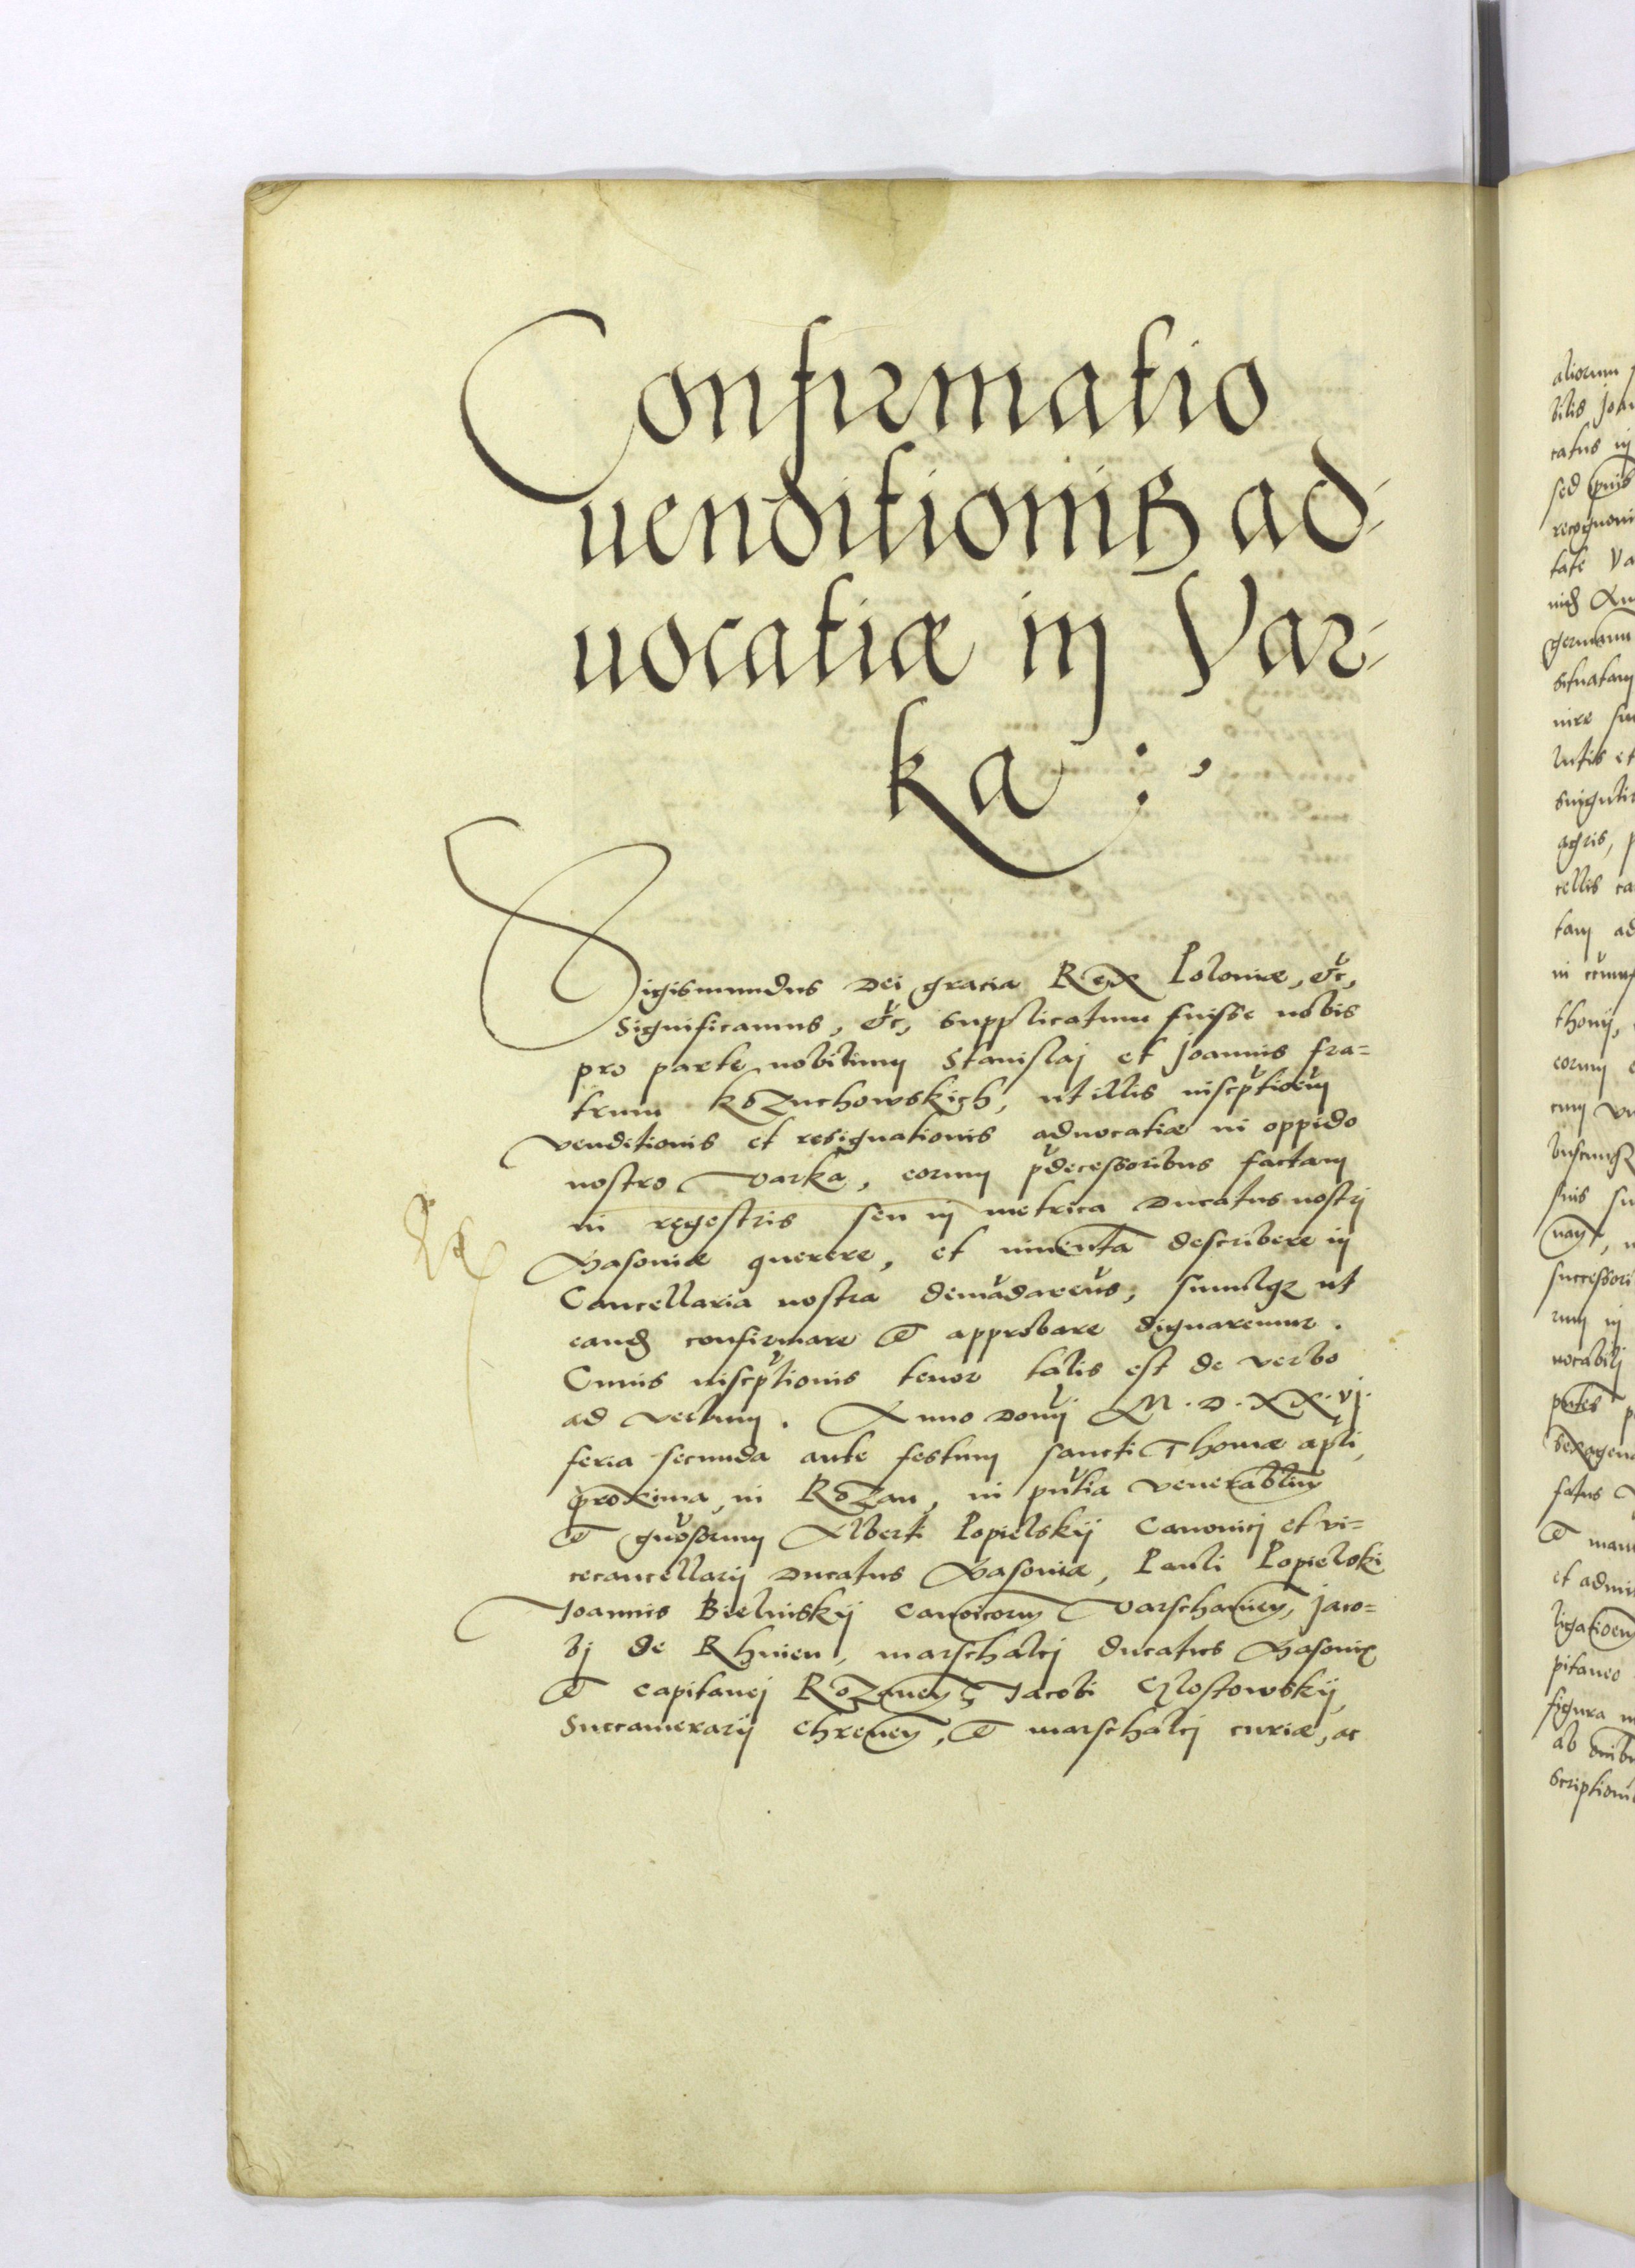 Confirmatio
uenditionis ad-
uocatiæ in Var-
ka :,
Sigismundus Dei gracia Rex Poloniæ, etc,
Significamus, etc, supplicatum fuisse nobis
pro parte nobilium Stanislaj et Joannis fra=
trum Kozuchowskich, ut illis inscptioem
venditionis et resignationis aduocatiæ in oppido
nostro Varka, eorum pdecessoribus factam
in regestris seu in metrica Ducatus nostrj
Masoviæ querere, et inventa describere in
Cancellaria nostra demadareus, simulqz ut
eand confirmare et approbare dignaremur.
Cuius inscptionis tenor talis est de verbo
ad verbum. Anno Domj M.D.XX.vj.
feria secunda ante festum sancti Thomæ apli,
proxima, in Rozan, in pntia venerablium
et gnosorum Alberti Popielskij Canonicj et vi=
cecancellarij Ducatus Masoviæ, Pauli Popielski
Joannis Bielinskij Canoicorum Varschavien, Jaco=
bj de Rhnien, marschalcj ducatus Masoviæ
et capitanej Rozanen, Jacobi Chlostowskij,
Succamerarij Chrenen, et marschalcj curiæ, ac
aliorum
bilis Joan
catus in
sed
recognoui
tate Va
germanu
situatam
iure su
lutis et
singulis
agris, p
cellis ca
tam ad
thonij,
eorum
cum
suis su
successori
rum in
uocabilj
sexagena
fatus
et man
et admi
ligatioem
pitaneo
figura
ab
scriptioni